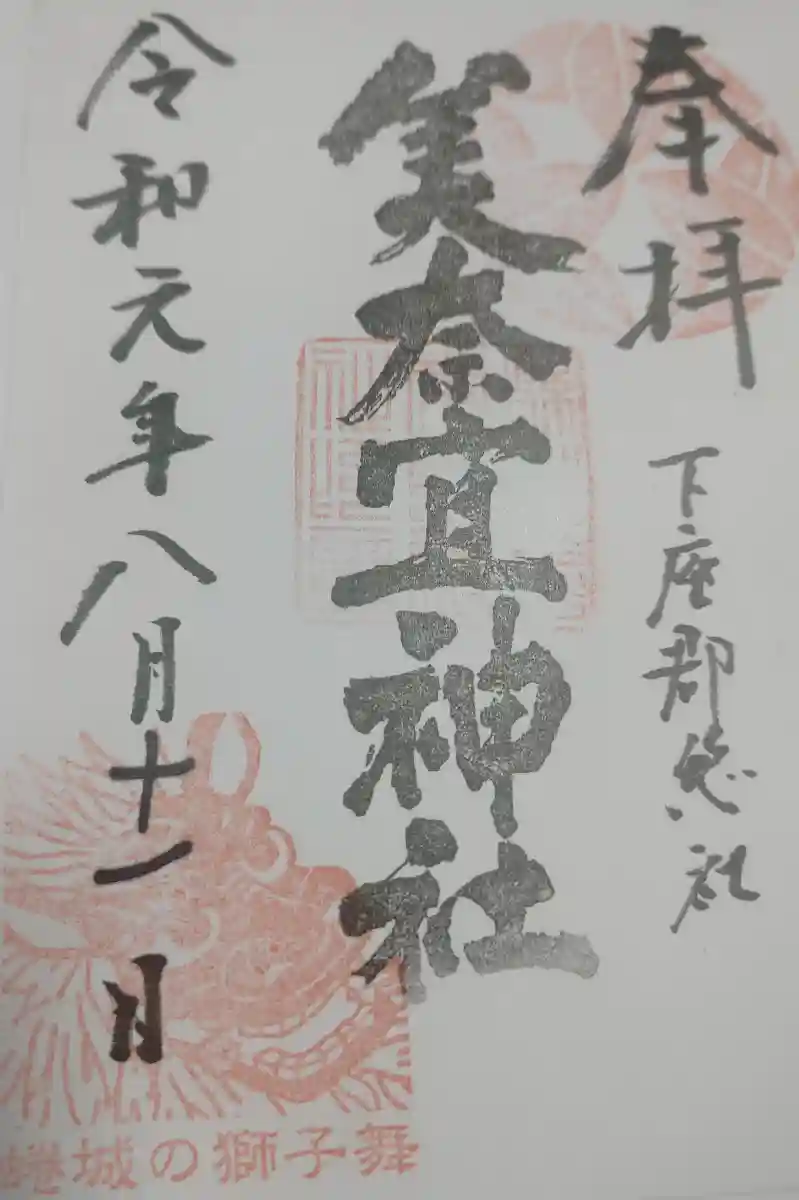 奉拝
下座郡惣社
美奈宜神社
令和元年八月十一日
蜷城の獅子舞